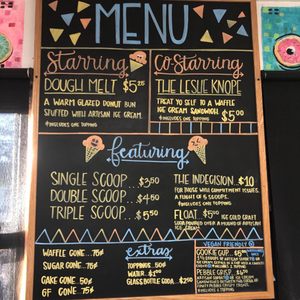 MENU
Starring
DOUGH MELT $5.25
A WARM GLAZED DONUT BUN
STUFFED WITH ARTISAN ICE CREAM.
*INCLUDES ONE TOPPING
Co-Starring
THE LESLIE KNOPE
TREAT YO SELF TO A WAFFLE
ICE CREAM SANDWICH $5.00
*INCLUDES ONE TOPPING
featuring
SINGLE SCOOP...$3.50
DOUBLE SCOOP...$4.50
TRIPLE SCOOP...$5.50
THE INDECISION...$10
FOR THOSE WITH COMMITMENT ISSUES,
A FLIGHT OF 5 SCOOPS.
*INCLUDES ONE TOPPING
FLOAT...$5.00
ICE COLD CRAFT
SODA POURED OVER
WAFFLE CONE...75¢
SUGAR CONE...75¢
CAKE CONE 50¢
GF CONE...75¢
extras
TOPPINGS...50¢
WATER..$1.00
GLASS BOTTLE SODA...$2.50
VEGAN FRIENDLY
COOKIE CUP..
PEBBLE CRISP..